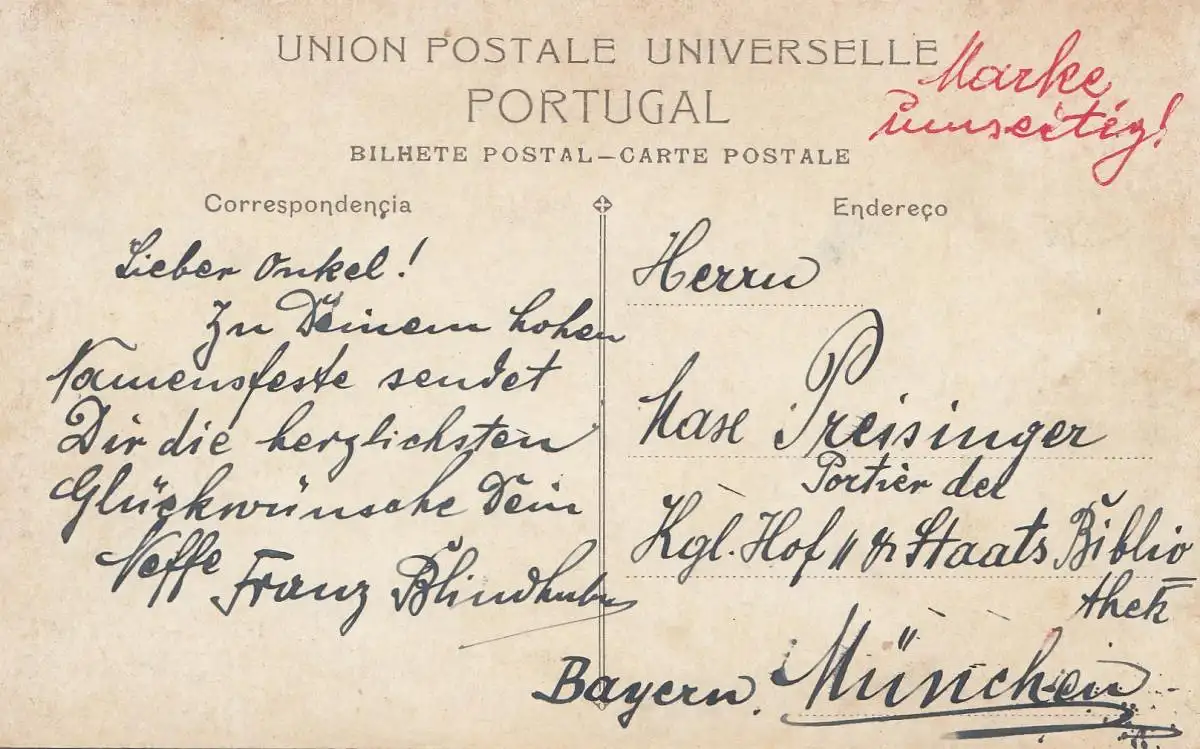 UNION POSTALE UNIVERSELLE
PORTUGAL
BILHETE POSTAL—CARTE POSTALE
Marke
umseitig!
Correspondençia
Lieber Onkel!
Zu Deinem hohen
Namensfeste sendet
Dir die herzlichsten
Glückwünsche Dein
Neffe Franz Blindhuber
Endereço
Herrn
Preisinger
Portier der
Kgl. Hof u Staats Biblio
thek
Bayern. München